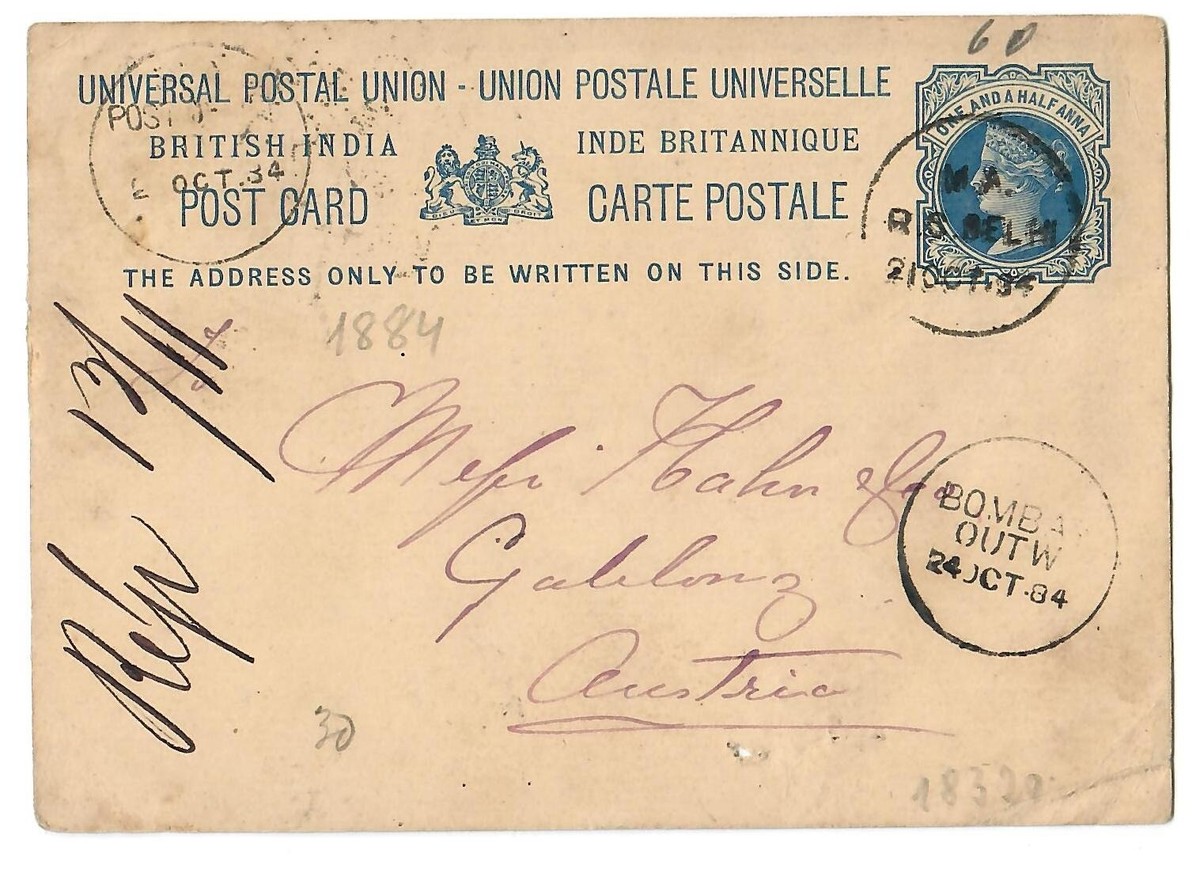 60
UNIVERSAL POSTAL UNION - UNION POSTALE UNIVERSELLE
ONE AND A HALF ANNA
BRITISH INDIA INDE BRITANNIQUE
POST CARD CARTE POSTALE
THE ADDRESS ONLY TO BE WRITTEN ON THIS SIDE.
POST
OCT.84
R.S.
21 OCT.84
1884
13/11
Messr Hahn & Co
Gablonz
Austria
BOMBA
OUTW
24 OCT.84
30
18320